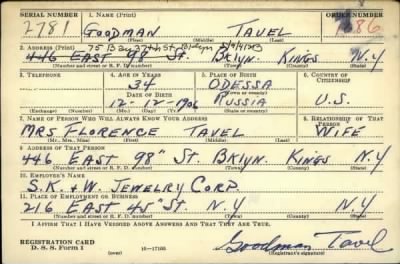 SERIAL NUMBER 1. NAME (Print) ORDER NUMBER
2781 GOODMAN TAVEL 1686
(First) (Middle) (Last)
2. ADDRESS (Print) 75 Bay 37th St. Bklyn
446 EAST 98" ST. BKLYN. KINGS N.Y
(Number and street or R. F. D. number) (Town) (County) (State)
3. TELEPHONE 4. AGE IN YEARS 5. PLACE OF BIRTH 6. COUNTRY OF CITIZENSHIP
34 ODESSA
DATE OF BIRTH (Town or county)
12-12-1906 RUSSIA U.S.
(Exchange) (Number) (Mo.) (Day) (Yr.) (State or country)
7. NAME OF PERSON WHO WILL ALWAYS KNOW YOUR ADDRESS 8. RELATIONSHIP OF THAT PERSON
MRS FLORENCE TAVEL WIFE
(Mr., Mrs., Miss) (First) (Middle) (Last)
9. ADDRESS OF THAT PERSON
446 EAST 98" ST. BKLYN. KINGS N.Y
(Number and street or R. F. D. number) (Town) (County) (State)
10. EMPLOYER'S NAME
S.K. + W. JEWELRY CORP.
11. PLACE OF EMPLOYMENT OR BUSINESS
216 EAST 45" ST. N.Y N.Y
(Number and street or R. F. D. number) (Town) (County) (State)
I AFFIRM THAT I HAVE VERIFIED ABOVE ANSWERS AND THAT THEY ARE TRUE.
REGISTRATION CARD
D. S. S. Form 1 (over) 16—17105 Goodman Tavel
(Registrant's signature)